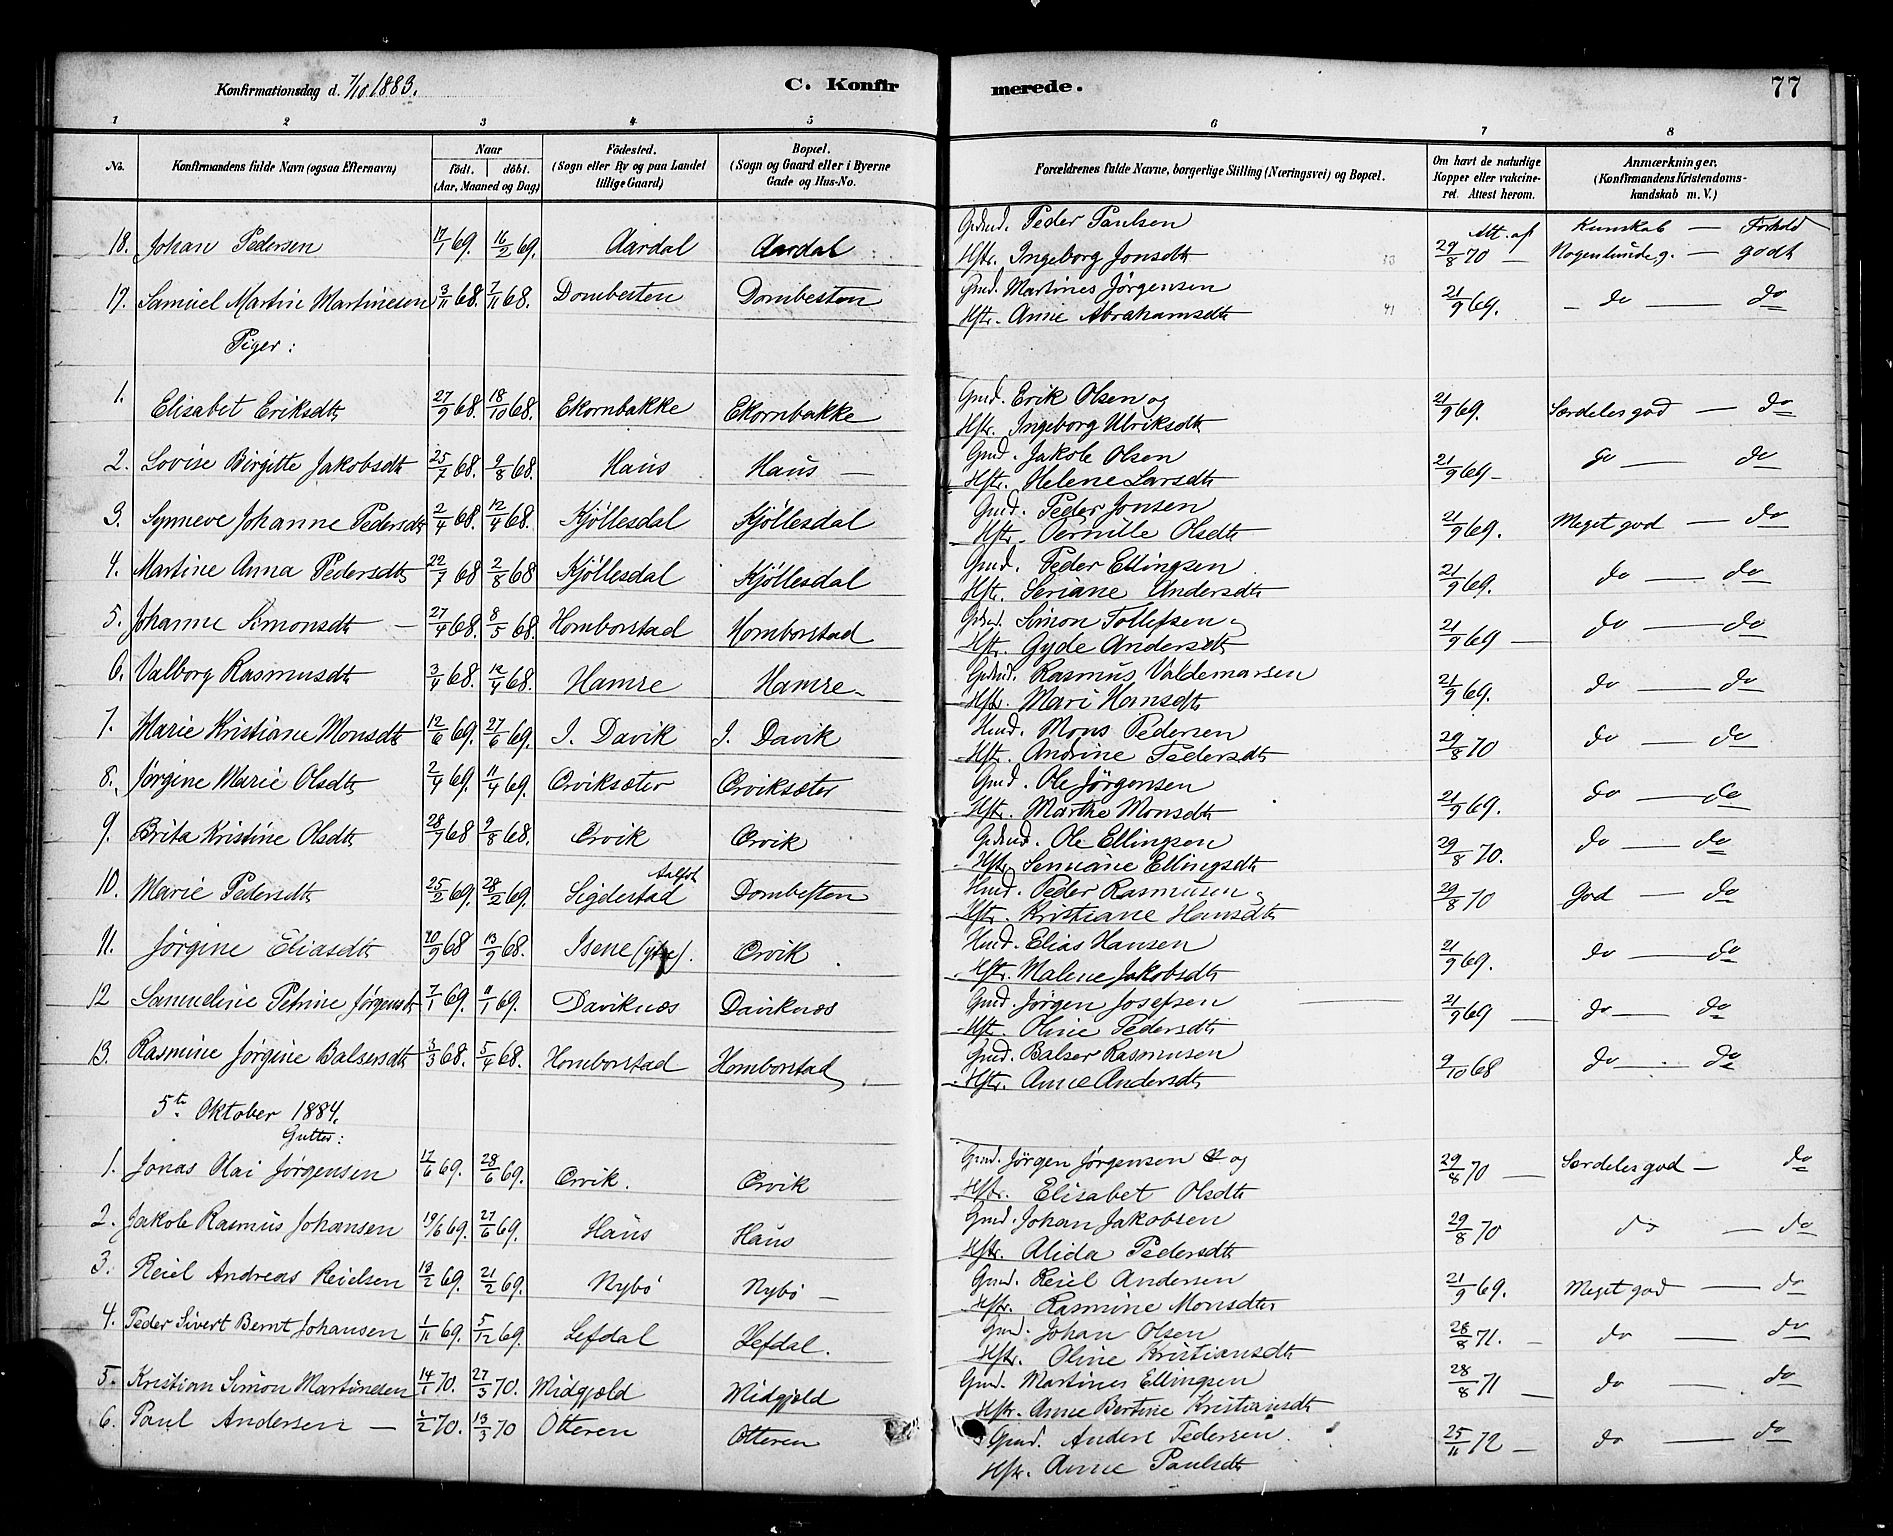 Konfirmationsdag d. 7/10 1883. C. Konfirmerede. 77
1 2 3 4 5 6 7 8
No. Konfirmandens fulde Navn (ogsaa Efternavn) Naar født. døbt. (Aar, Maaned og Dag) Fødested. (Sogn eller By og paa Landet tillige Gaard) Bopæl. (Sogn og Gaard eller i Byerne Gade og Hus-No. Forældrenes fulde Navne, borgerlige Stilling (Næringsvei) og Bopæl. Om havt de naturlige Kopper eller vakcineret. Attest herom. Anmærkninger. (Konfirmandens Kristendomskundskab m. V.)
Gbrmd. Peder Paulsen Att. af Kunskab — Forhold
18. Johan Pedersen 17/1 69. 16/2 69. Aardal Aardal Hstr. Ingeborg Jonsdtr 53 29/8 70 — Nogenlunde g. — godt
17. Samuel Martin Martinesen 3/11 68. 7/11 68. Dombesten Dombesten Gmd. Martines Jørgensen 21/9 69. — do — do
Hstr. Anne Abrahamsdtr 41
Piger:
1. Elisabet Eriksdtr 27/9 68. 18/10 68. Ekornbakke Ekornbakke Gmd. Erik Olsen og 21/9 69. Særdeles god — do
Hstr. Ingeborg Ulriksdtr
2. Lovise Birgitte Jakobsdtr 25/7 68. 9/8 68. Haus Haus — Gmd. Jakob Olsen 21/9 69 — do — do
Hstr. Helene Larsdtr
3. Synneve Johanne Pedersdtr 2/4 68. 12/4 68. Kjøllesdal Kjøllesdal Gmd. Peder Jonsen 21/9 69. Meget god — do
Hstr. Pernille Olsdtr
4. Martine Anna Pedersdtr 22/7 68 2/8 68 Kjøllesdal Kjøllesdal Gmd. Peder Ellingsen 21/9 69. do — do
Hstr. Seriane Andersdtr
5. Johanne Simonsdtr — 27/4 68. 8/5 68. Homborstad Homborstad Simon Tollefsen 21/9 69 — do — do
Hstr. Gyde Andersdtr
6. Valborg Rasmusdtr 3/4 68. 12/4 68. Hamre Hamre Rasmus Valdemarsen 21/9 69. do — do
Hstr. Mari Hansdtr
7. Marie Kristiane Monsdtr 12/6 69. 27/6 69. I. Davik I. Davik Hmd. Mons Pedersen 29/8 70 do — do
Hstr. Andrine Pedersdtr
8. Jørgine Marie Olsdtr 2/4 69. 11/4 69. Ørviksæter Ørviksæter Gmd. Ole Jørgensen 21/9 69. do — do
Hstr. Marthe Monsdtr
9. Brita Kristine Olsdtr 28/7 68 9/8 68. Ørvik Ørvik Ole Ellingsen 29/8 70. do — do
Hstr. Ellingsdtr
10. Marie Pedersdtr 25/2 69. 28/2 69. Aalfot Sigdestad Dombesten Hmd. Peder Rasmusen 29/8 70 God — do
Hstr. Kristiane Hansdtr
11. Jørgine Eliasdtr 10/9 68 13/9 68. Isene (ytre). Ørvik Hmd. Elias Hansen 21/9 69. do — do
Hstr. Malene Jakobsdtr
12 Samueline Petrine Jørgensdt 7/1 69. 11/1 69. Daviknæs Daviknæs Gmd. Jørgen Josefsen 21/9 69 — do — do
Hstr. Oline Pedersdtr
13. Rasmine Jørgine Balsersdtr 3/3 68. 5/4 68. Homborstad Homborstad Gmd. Balser Rasmusen 9/10 68 do — do
Hstr. Anne Andersdtr
5te Oktober 1884.
Gutter:
1. Jonas Olai Jørgensen 17/6 69. 28/6 69. Ørvik. Ørvik Gmd. Jørgen Jørgensen og 29/8 70 — Særdeles god — do
Hstr. Elisabet Olsdtr
2. Jakob Rasmus Johansen 19/6 69. 27/6 69. Haus Haus Gmd. Johan Jakobsen 29/8 70 do — do
Hstr. Alida Pedersdtr
3. Reiel Andreas Reielsen 13/2 69. 21/2 69. Nybø Nybø — Gmd. Reiel Andersen 21/9 69. Meget god — do
Hstr. Rasmine Monsdtr
4. Peder Sivert Bernt Johansen 1/11 69. 5/12 69. Lefdal Lefdal. Gmd. Johan Olsen 28/8 71. — do — do
Hstr. Oline Kristiansdtr
5. Kristian Simon Martinesen 14/1 70. 27/3 70. Midgjæld Midgjæld Gmd. Martines Ellingsen 28/8 71 — do — do
Hstr. Anne Bertine Kristiansdtr
6. Paul Andersen — 1/2 70. 13/3 70 Otteren Otteren Gmd. Anders Pedersen 25/11 72 — do — do
Hstr. Anne Paulsdtr